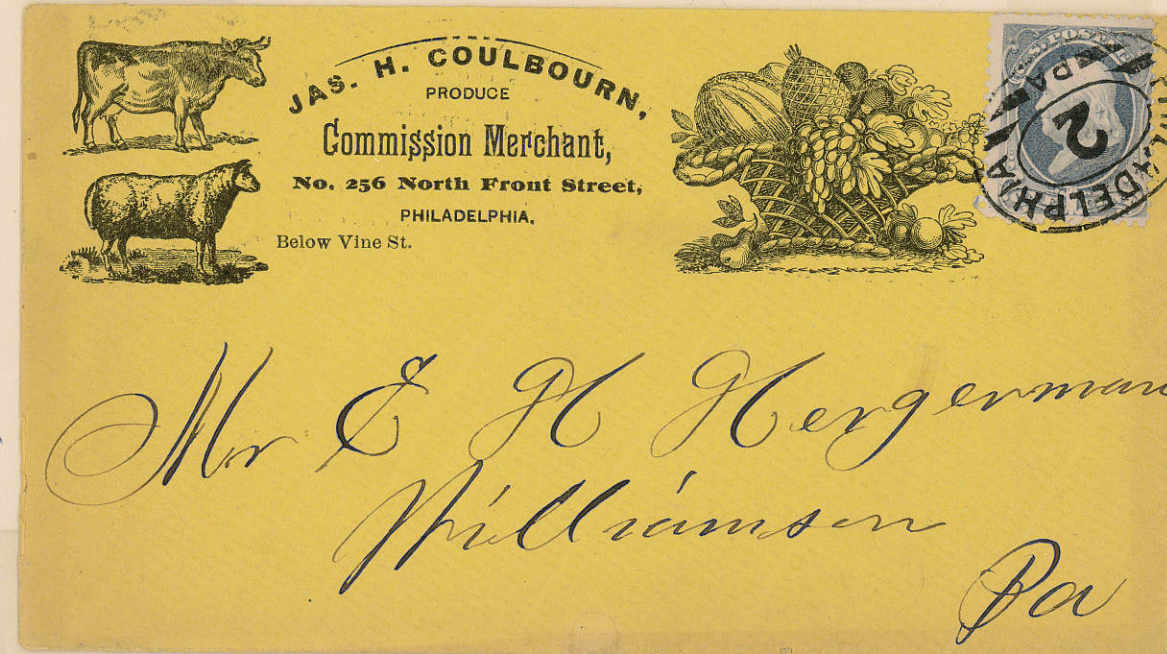 JAS. H. COULBOURN,
PRODUCE
Commission Merchant,
No. 256 North Front Street,
PHILADELPHIA.
Below Vine St.
U.S. POSTAGE
PHILADELPHIA PA
2
Mr E H Hergerman
Williamson
Pa